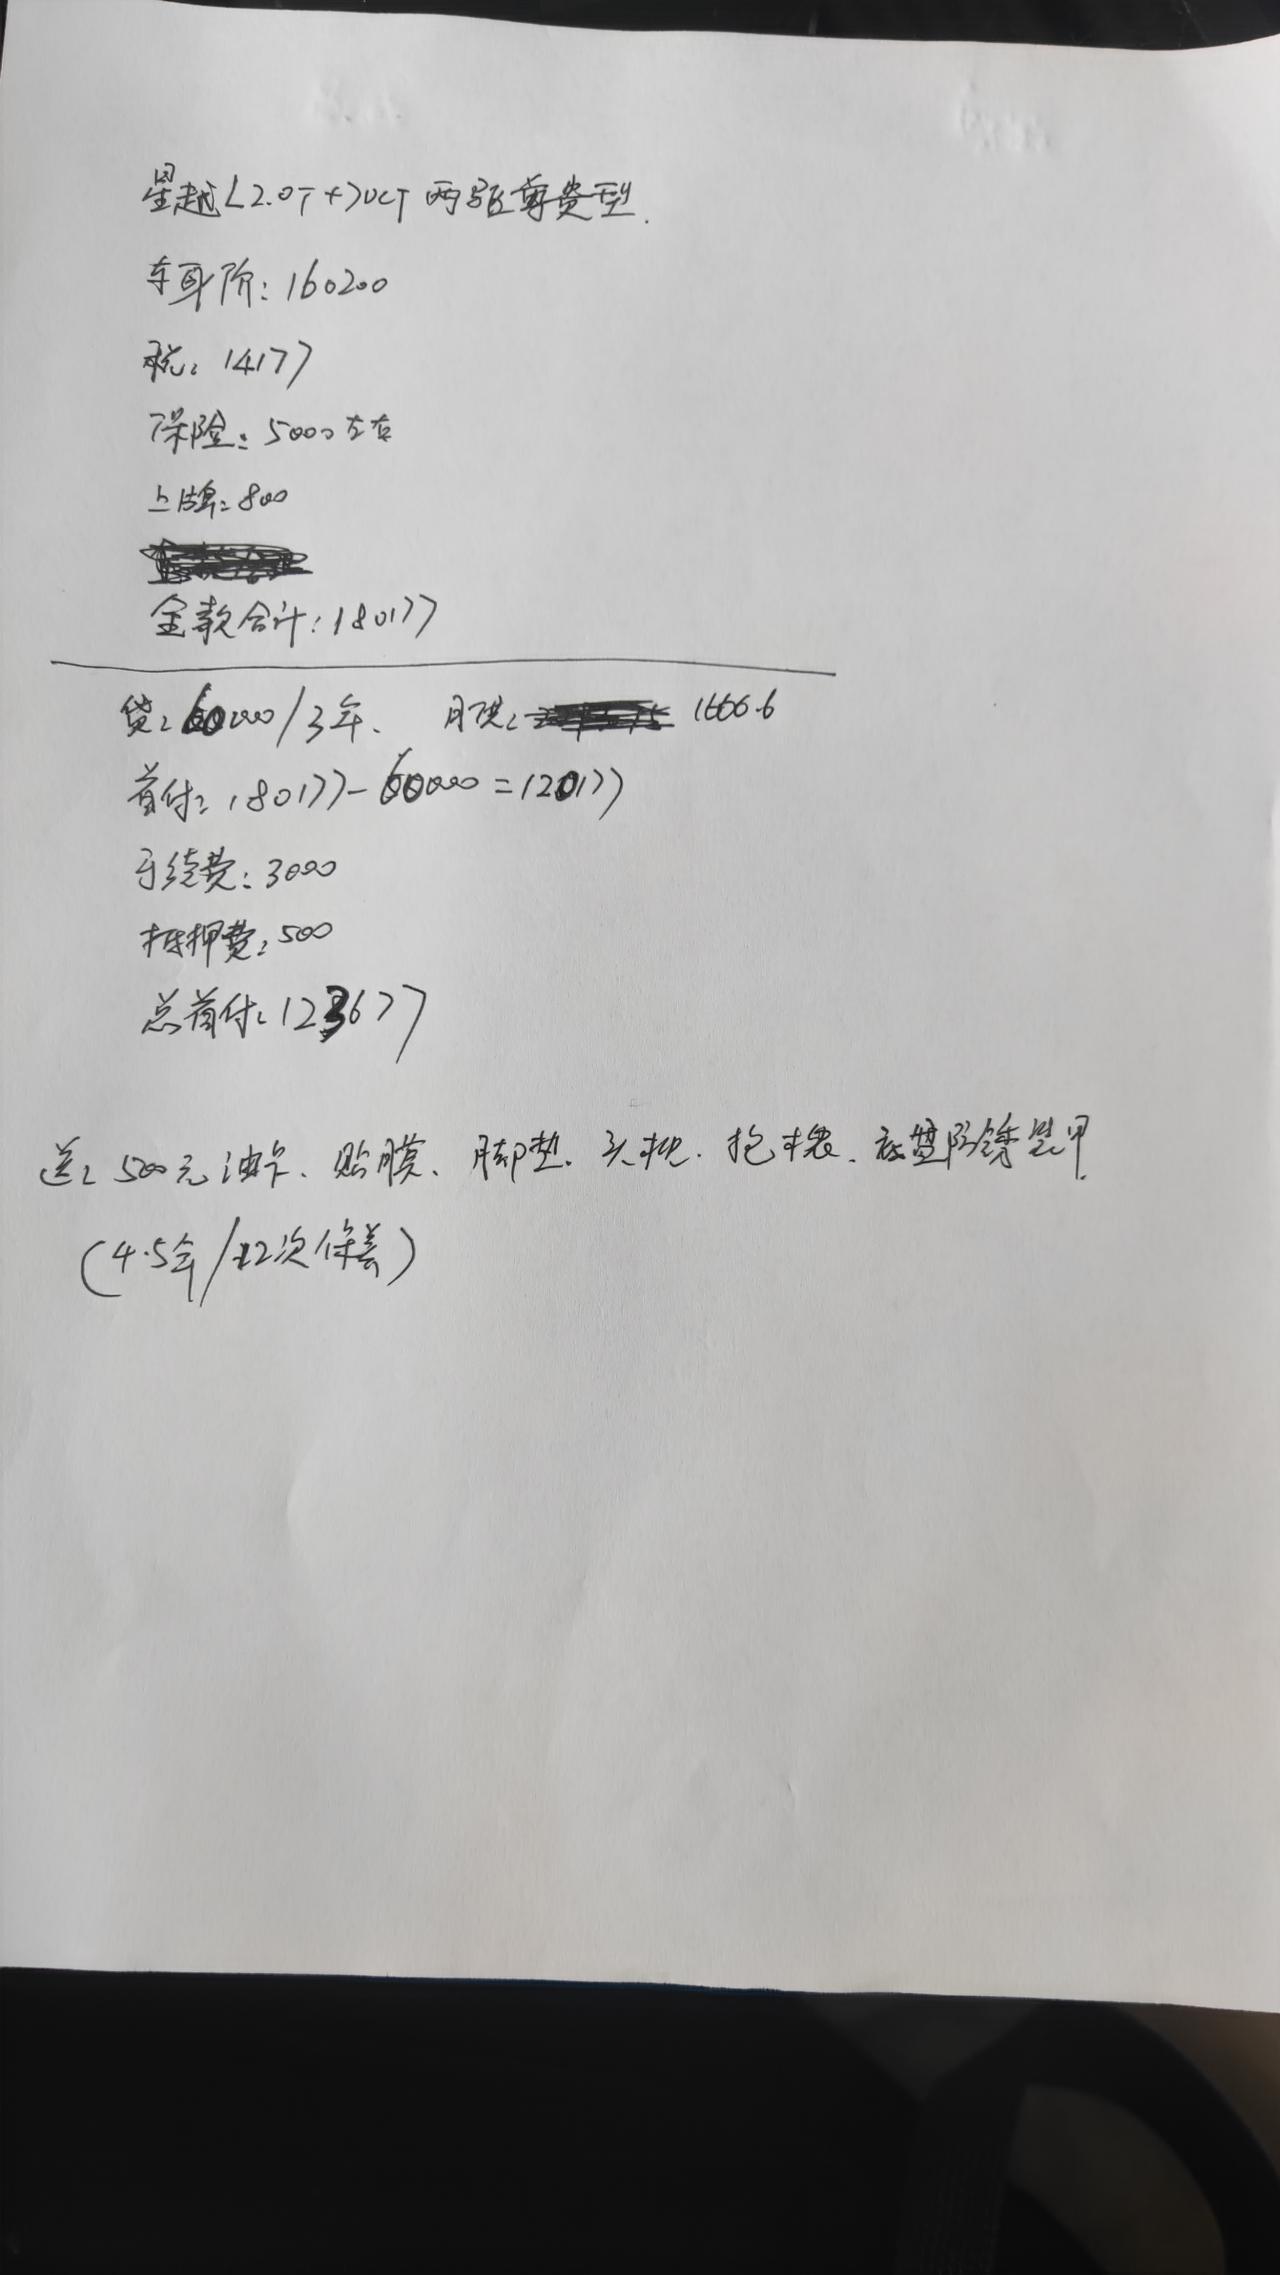 星越L2.0T+7DCT两驱尊贵型.
车身价:160200
税:14177
保险:5000左右
上牌:800
全款合计:180177
贷:60000/3年、 月供: 1666.6
首付:180177-60000=120177
手续费:3000
抵押费:500
总首付:123677
送:500元油卡、贴膜、脚垫、头枕、抱枕、底盘防锈装甲.
(4.5年/12次保养)